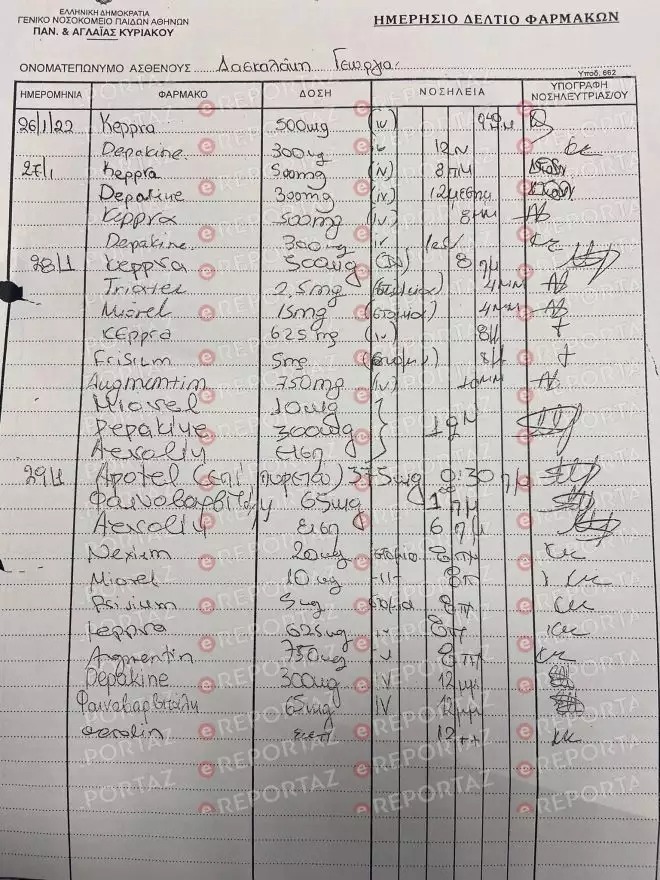 ΕΛΛΗΝΙΚΗ ΔΗΜΟΚΡΑΤΙΑ
ΓΕΝΙΚΟ ΝΟΣΟΚΟΜΕΙΟ ΠΑΙΔΩΝ ΑΘΗΝΩΝ
ΠΑΝ. & ΑΓΛΑΪΑΣ ΚΥΡΙΑΚΟΥ
ΗΜΕΡΗΣΙΟ ΔΕΛΤΙΟ ΦΑΡΜΑΚΩΝ
ΟΝΟΜΑΤΕΠΩΝΥΜΟ ΑΣΘΕΝΟΥΣ Δασκαλάκη Γεωργία
Υποδ. 662
ΗΜΕΡΟΜΗΝΙΑ ΦΑΡΜΑΚΟ ΔΟΣΗ ΝΟΣΗΛΕΙΑ ΥΠΟΓΡΑΦΗ ΝΟΣΗΛΕΥΤΡΙΑΣ/ΟΥ
26/1/22 Keppra 500mg (iv)
Depakine 300mg iv 12
27/1 Keppra 500mg (iv) 8πμ
Depakine 300mg (iv) 12μεσημ
Keppra 500mg (iv) 8μμ
Depakine 300mg iv
28/1 Keppra 500mg (iv) 8 πμ
2,5mg 4μμ
15mg (στόμα) 4μμ
Keppra 625mg (iv) 8μ
Frisium 5mg 8μ
Augmentin 750mg (iv) 10μμ
10mg
Depakine 300mg
Aerolin εισπ
29/1 Apotel (επί πυρετού) 375mg 0:30 πμ
Φαινοβαρβιτάλη 65mg 1 πμ
Aerolin εισπ 6 πμ
Nexium 20mg στόμα 8πμ
10mg 8π
Frisium 5mg στόμα 8π
Keppra 625mg iv 8π
Augmentin 750mg 8π
Depakine 300mg IV 12μμ
Φαινοβαρβιτάλη 65mg IV 12μμ
Aerolin εισπ 12
e REPORTAZ